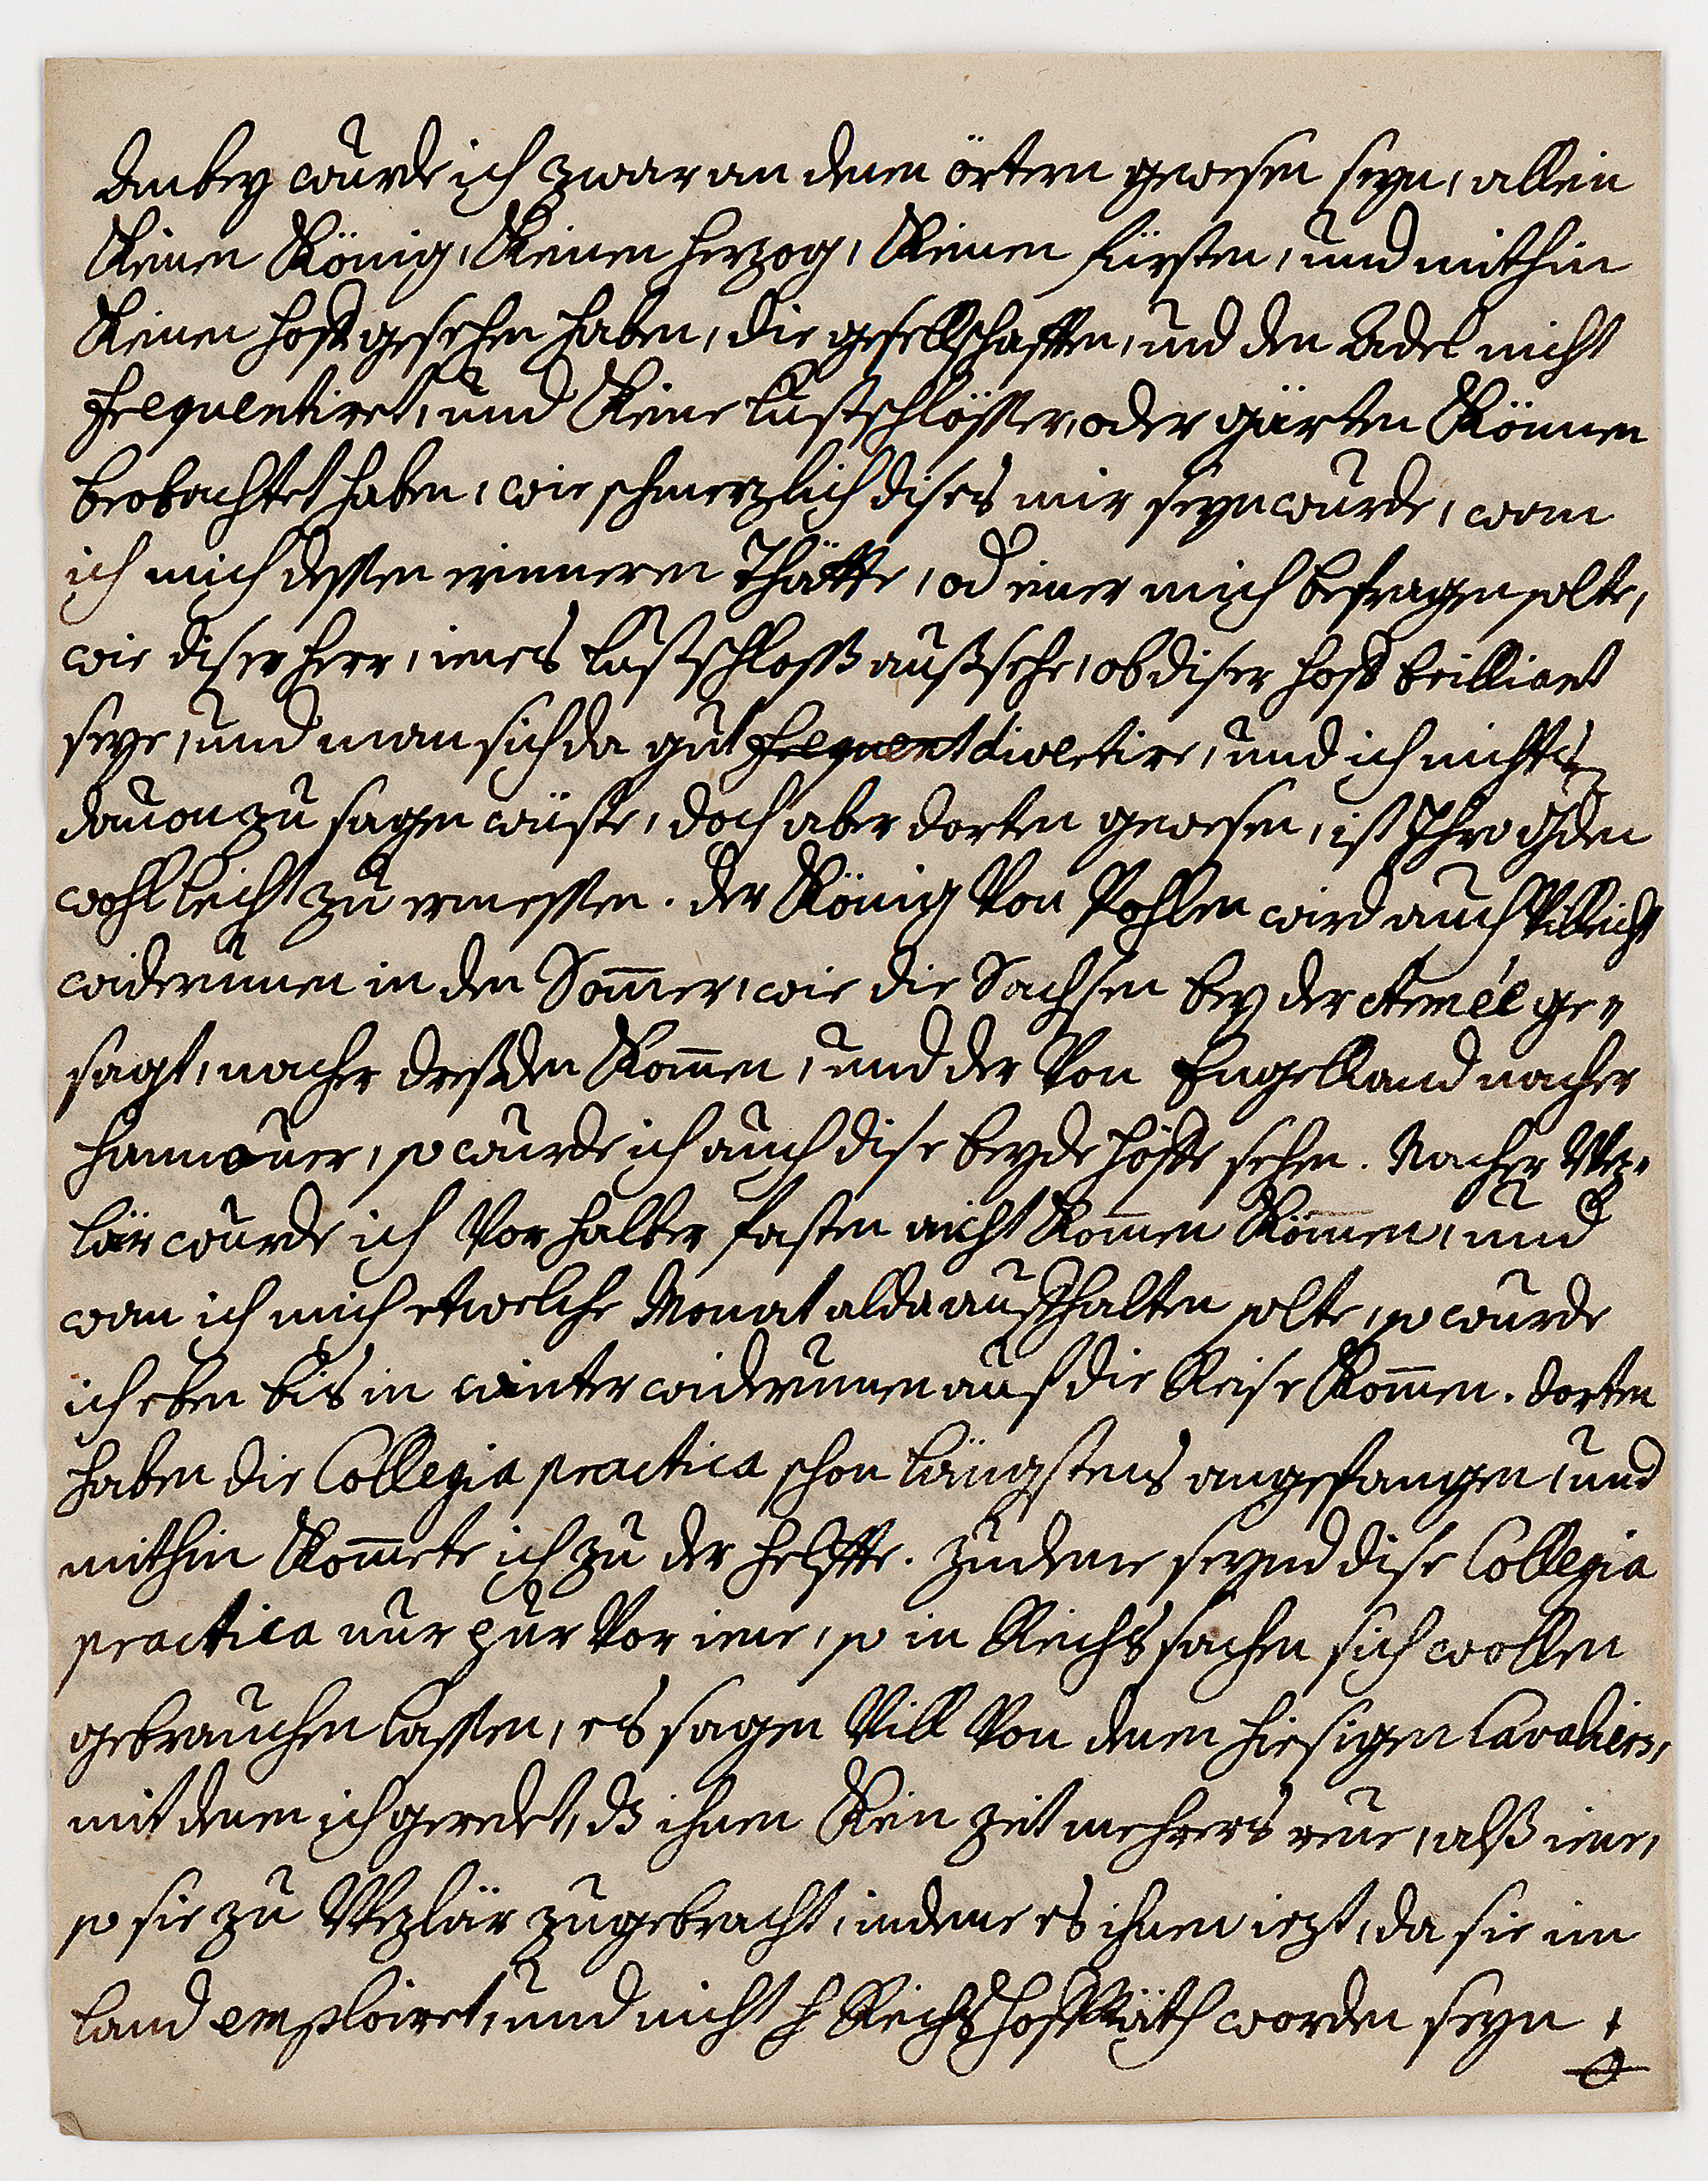 dabey wurde ich zwar an denen örtern gewesen seyn, allein
Keinen König, Keinen Herzog, Keinen fürsten, und mithin
Keinen Hoff gesehen haben, die gesellschafften, und den Adel nicht
frequentiret, und Keine lustschlösser, oder gärten Können
beobachtet haben, wie schmerzlich dises mir seyn wurde, wan
ich mich dessen erinneren Thätte, od iener mich befragen solte,
wie diser Herr, ienes lustschloss außsehe, ob diser Hoff brilliant
seye, und man sich da gut frequent divertire, und ich nichts
davon zu sagen wüste, doch aber dorten gewesen, ist Ihro Gden
wohl leicht zu ermessen. der König Von Pohlen wird auch Villeicht
widerumen in den Som̄er, wie die Sachsen bey der Armée ge„
sagt, nacher dresden Kom̄en, und der Von Engelland nacher
Hannover, so wurde ich auch dise beyde Höffe sehen. Nacher Wez„
lär wurde ich Vor halber fasten nicht Kom̄en Kön̄en, und
wan ich mich etwelche Monat alda aufhalten solte, so wurde
ich eben bis in winter widerumen auf die Reise Kom̄en. dorten
haben die Collegia practica schon längstens angefangen, und
mithin Kom̄ete ich zu der helffte. zudeme seynd dise Collegia
practica nur pur Vor iene, so in Reichs sachen sich wollen
gebrauchen lassen, es sagen Vill Von denen hiesigen Cavaliers,
mit denen ich geredet, dß ihnen Kein zeit mehrers reue, alß iene,
so sie zu Wezlär zugebracht, indeme es ihnen iezt, da sie im
land emploiret, und nicht H Reichs Hoff Räth worden seyn